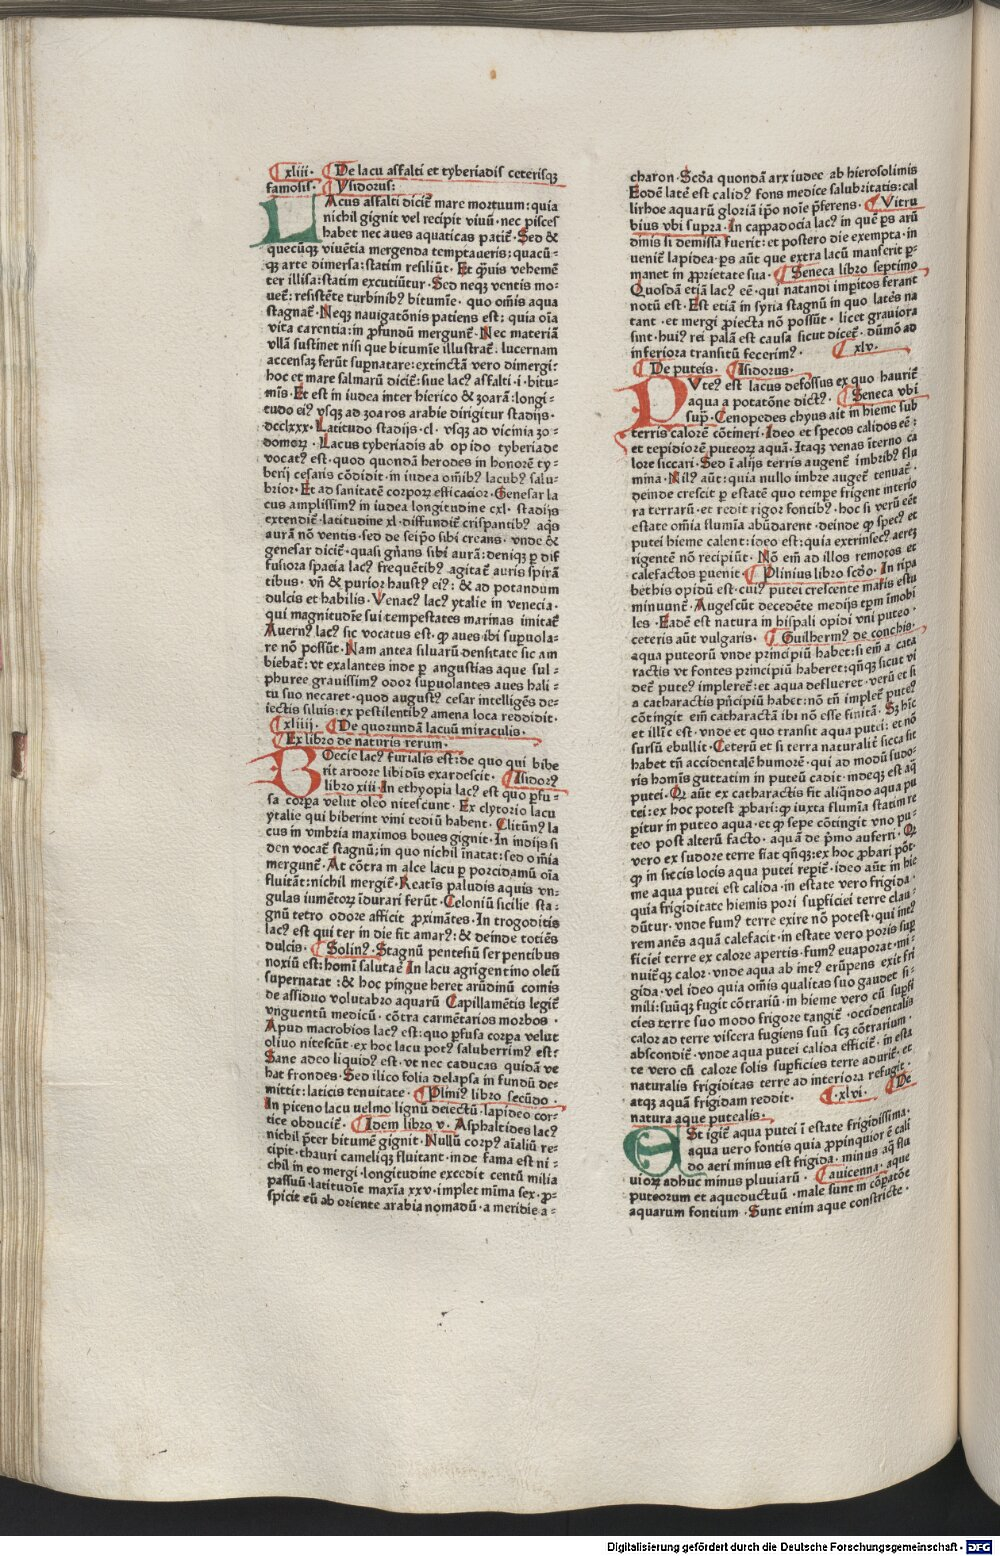 xliii· De lacu asfalti et tyberiadis ceterisqꝫ
famosis· Ysidorus:
LAcus asfalti dicit᷑ mare mortuum: quia
nichil gignit vel recipit viuū· nec pisces
habet nec aues aquaticas patit᷑· Sed &
quecūqꝫ viuētia mergenda temptaueris: quacū-
qꝫ arte dimersa: statim resiliūt· Et q̄uis vehemē
ter illisa: statim excutiūtur· Sed neqꝫ ventis mo-
uet᷑: resistēte turbinibꝰ bitumīe· quo om̄is aqua
stagnat᷑· Neqꝫ nauigatōnis patiens est: quia oīa
vita carentia: in ꝓfundū mergunt᷑· Nec materiā
vllā sustinet nisi que bitumīe illustrat᷑· lucernam
accensaꝫ ferūt supnatare: extinctā vero dimergi:
hoc et mare salmarū dicit᷑: siue lacꝰ asfalti·i·bitu-
mis· Et est in iudea inter hierico & ʒoarā: longi-
tudo eiꝰ vsqꝫ ad ʒoaros arabie dirigitur stadijs·
dcclxxx· Latitudo stadijs·cl· vsqꝫ ad vicinia ʒo-
domoꝝ· Lacus tyberiadis ab opido tyberiade
vocatꝰ est· quod quondā herodes in honorē ty-
berij cesaris cōdidit· in iudea om̄ibꝰ lacubꝰ salu-
brior· Et ad sanitatē corpoꝝ efficacior· Genesar la
cus amplissimꝰ in iudea longitudine cxl· stadijs
extendit᷑· latitudine xl· diffundit᷑ crispantibꝰ aqs
aurā nō ventis· sed de seip̄o sibi creans· vnde &
genesar dicit᷑· quasi gn̄ans sibi aurā: deniqꝫ p dif
fusiora spacia lacꝰ frequētibꝰ agitat᷑ auris spirā
tibus· vn̄ & purior haustꝰ eiꝰ: & ad potandum
dulcis et habilis· Venacꝰ lacꝰ ytalie in venecia·
qui magnitudīe sui tempestates marinas imitat᷑
Auernꝰ lacꝰ sic vocatus est· ꝙ aues ibi supuola-
re nō possūt· Nam antea siluarū densitate sic am
biebat᷑: vt exalantes inde p angustias aque sul-
phuree grauissimꝰ odor supuolantes aues hali-
tu suo necaret· quod augustꝰ cesar intelligēs de-
iectis siluis: ex pestilentibꝰ amena loca reddidit·
xliiii· De quorundā lacuū miraculis·
Ex libro de naturis rerum·
BOecie lacꝰ furialis est: de quo qui bibe
rit ardore libidīs exardescit· Isidorꝰ
libro xiii· In ethyopia lacꝰ est quo pfu-
sa corpa velut oleo nitescunt· Ex clytorio lacu
ytalie qui biberint vini tediū habent· Clitūnꝰ la
cus in vmbria maximos boues gignit· In indijs si
den vocat᷑ stagnū: in quo nichil inatat: sed om̄ia
mergunt᷑· At cōtra in alce lacu p porcidamū oīa
fluitāt: nichil mergit᷑· Reatīs paludis aquis vn-
gulas iumētoꝝ īdurari ferūt· Celoniū sicilie sta-
gnū tetro odore afficit ꝓximātes· In trogoditis
lacꝰ est qui ter in die fit amarꝰ: & deinde totiēs
dulcis· Solinꝰ· Stagnū pentesiū serpentibus
noxiū est: homī salutae᷑ In lacu agrigentino oleū
supernatat: & hoc pingue heret arūdinū comis
de assiduo volutabro aquarū Capillamētis legit᷑
vnguentū medicū· cōtra carmētarios morbos·
Apud macrobios lacꝰ est: quo pfusa corpa velut
oliuo nitescūt· ex hoc lacu potꝰ saluberrimꝰ est:
Sane adeo liquidꝰ est· vt nec caducas quidā ve
hat frondes· Sed ilico folia delapsa in fundū de-
mittit: laticis tenuitate· Plinii libro secūdo·
In piceno lacu uelmo lignū deiectū· lapideo cor-
tice obducit᷑· Idem libro v· Asphaltides lacꝰ
nichil p̄ter bitumē gignit· Nullū corpꝰ aīaliū re-
cipit· thauri cameliqꝫ fluitant· inde fama est ni-
chil in eo mergi· longitudine excedit centū milia
passuū· latitudīe maxīa xxv· implet mīma sex· ꝓ-
spicit eū ab oriente arabia nomadū· a meridie a-
charon· Scd̄a quondā arx iudee ab hierosolimis
Eodē late᷑ est calidꝰ fons medice salubritatis: cal
lirhoe aquarū gloriā ip̄o noīe p̄ferens· Vitru
bius vbi supra· In cappadocia lacꝰ in que ps arū
dinis si demissa fuerit: et postero die exempta· in
ueniet᷑ lapidea· ps aūt que extra lacū manserit p-
manet in ꝓprietate sua· Seneca libro septimo
Quosdā etiā lacꝰ ee᷑· qui natandi impitos ferant
notū est· Est etiā in syria stagnū in quo lateīs na
tant· et mergi ꝓiecta nō possūt· licet grauiora
sint· huiꝰ rei palā est causa sicut dicet᷑· dūmō ad
inferiora transitū fecerimꝰ· xlv·
De puteis· Isidorus·
PVteꝰ est lacus defossus ex quo haurit᷑
aqua a potatōne dictꝰ· Seneca vbi
sup̄· Cenopedes chyus ait in hieme sub
terris calorē cōtineri· Ideo et specos calidos ee᷑:
et tepidiorē puteoꝝ aquā· Itaqꝫ venas īterno ca
lore siccari· Sed ī alijs terris augent᷑ imbribꝰ flu
mina· Nilꝰ aūt: quia nullo imbre auget᷑ tenuat᷑·
deinde crescit p estatē quo tempe frigent interio
ra terrarū· et redit rigor fontibꝰ· hoc si verū eēt
estate om̄ia flumīa abūdarent· deinde ꝙ specꝰ et
putei hieme calent: ideo est: quia extrinsecꝰ aereꝫ
rigentē nō recipiūt· Nō em̄ ad illos remotos et
calefactos puenit· Plinius libro scd̄o· In ripa
bethis opidū est· cuiꝰ putei crescente maris estu
minuunt᷑· Augescūt decedēte medijs tp̄m īmobi
les· Eadē est natura in hispali opidi vni puteo·
ceteris aūt vulgaris· Guilhermꝰ de conchis·
aqua puteorū vnde principiū habet: si em̄ a cata
ractis vt fontes principiū haberet: qn̄qꝫ sicut vi
det᷑ puteꝰ impleret᷑: et aqua deflueret· verū et si
a catharactis pn̄cipiū habet: nō tn̄ implet᷑ puteꝰ
cōtingit em̄ catharactā ibi nō esse finitā· Sꝫ hīc
et illīc est· vnde et quo transit aqua putei: et nō
sursū ebullit· Ceterū et si terra naturalit᷑ sicca sit
habet tn̄ accidentalē humorē· qui ad modū sudo-
ris homīs guttatim in puteū cadit· indeqꝫ est aq̄
putei· Qꝛ aūt ex catharactis fit aliqn̄do aqua pu
tei: ex hoc potest ꝓbari: ꝙ iuxta flumīa statim re
pitur in puteo aqua· et ꝙ sepe cōtingit vno pu-
teo post alterū facto· aquā de p̄mo auferri· Qꝛ
vero ex sudore terre fiat qn̄qꝫ: ex hoc ꝓbari pōt·
ꝙ in siccis locis aqua putei repit᷑· ideo aūt in hie
me aqua putei est calida· in estate vero frigida·
quia frigiditate hiemis pori supficiei terre clau
dūtur· vnde fumꝰ terre exire nō potest· qui intꝰ
remanēs aquā calefacit· in estate vero poris sup
ficiei terre ex calore apertis· fumꝰ euaporat· mi-
nuit᷑qꝫ calor· vnde aqua ab intꝰ erūpens exit fri
gida· vel ideo quia om̄is qualitas suo gaudet si-
mili: suūqꝫ fugit cōtrariū· in hieme vero cū supfi
cies terre suo modo frigore tangit᷑· occidentalis
calor ad terre viscera fugiens suū scꝫ cōtrarium·
abscondit᷑· vnde aqua putei calida efficit᷑· in esta
te vero cū calore solis supficies terre adurit᷑· et
naturalis frigiditas terre ad interiora refugit·
atqꝫ aquā frigidam reddit· ·xlvi· De
natura aque putealis·
ESt igit᷑ aqua putei ī estate frigidissima·
aqua vero fontis quia ꝓpinquior ē cali
do aeri minus est frigida· minus aq̄ flu
uioꝝ adhuc minus pluuiarū· auicenna· aque
puteorum et aqueductuū· male sunt in cōpatōe
aquarum fontium· Sunt enim aque constricte·
Digitalisierung gefördert durch die Deutsche Forschungsgemeinschaft - DFG